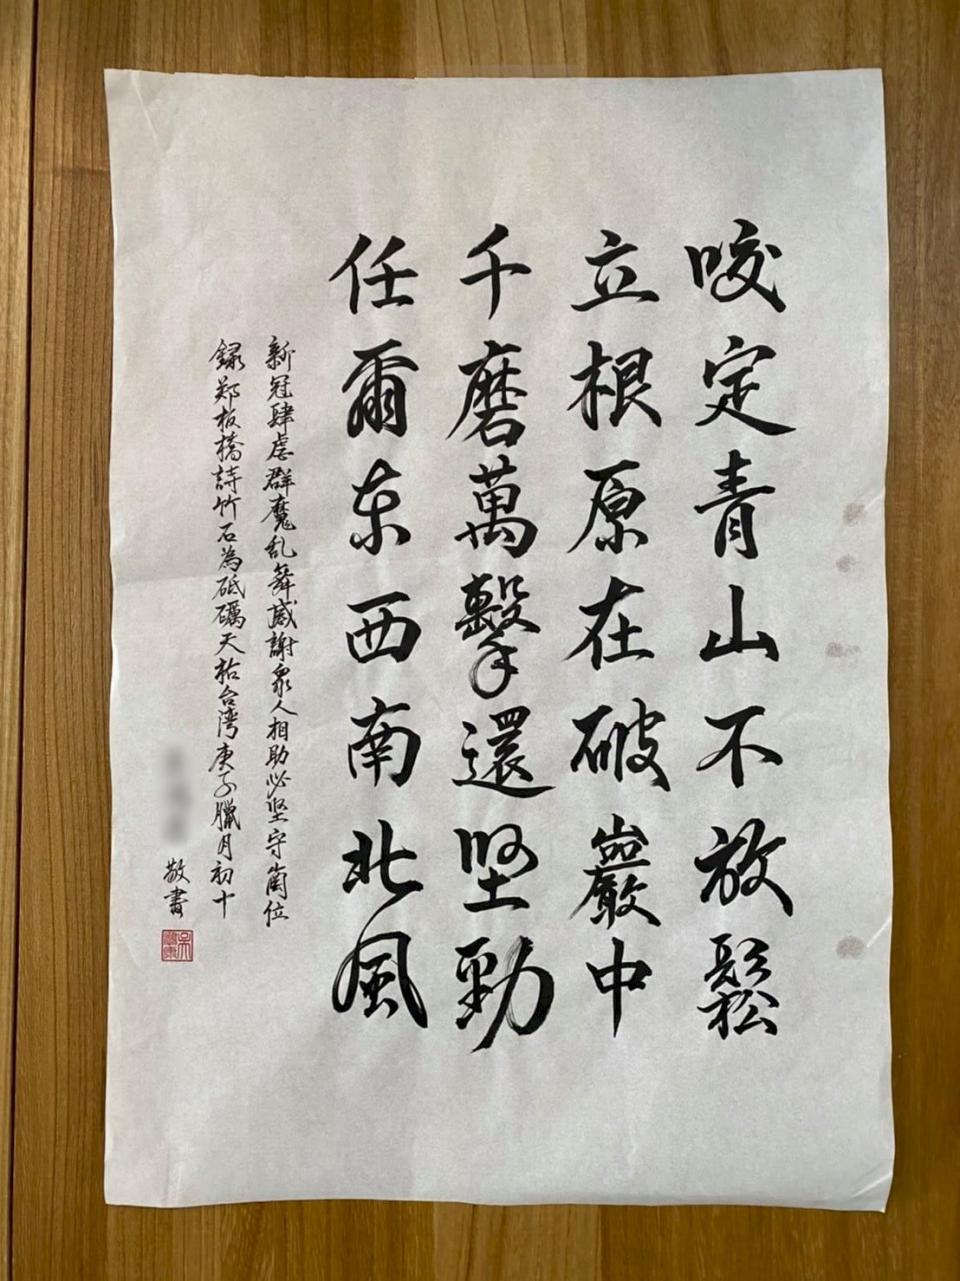 咬定青山不放鬆
立根原在破巖中
千磨萬擊還坚勁
任爾东西南北風
新冠肆虐群魔乱舞感謝眾人相助必坚守崗位
録郑板橋詩竹石為砥礪天祐台湾庚子臘月初十
敬書